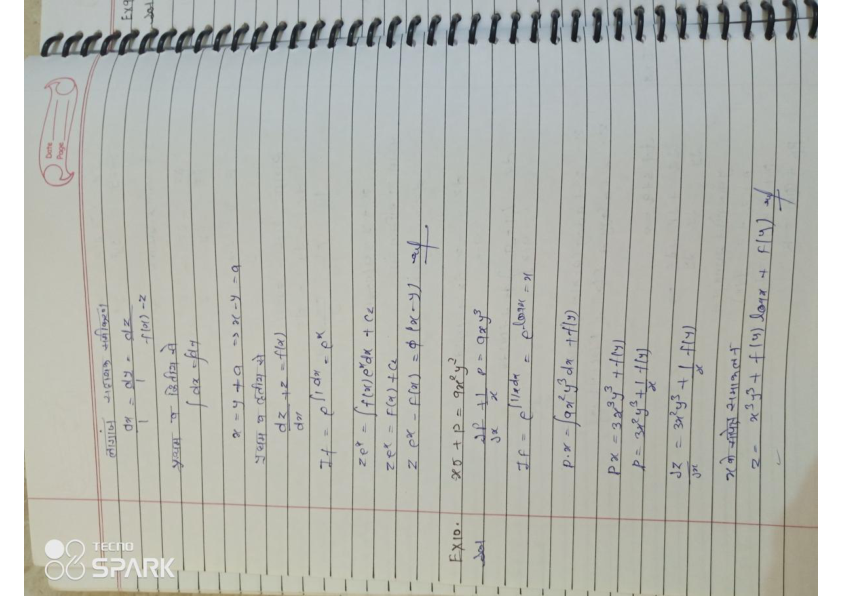 Date
Page
लाग्रांज सहायक समीकरण
dx/1 = dy/1 = dz/f(x)-z
प्रथम व द्वितीय से
∫dx = ∫dy
x = y + a => x - y = a
प्रथम व तृतीय से
dz/dx + z = f(x)
If = e^∫1 dx = e^x
z e^x = ∫f(x) e^x dx + c₂
z e^x = F(x) + c₂
z e^x - F(x) = ϕ(x - y)
EX10. xr + p = 9x²y³
∂p/∂x + 1/x p = 9xy³
If = e^∫1/x dx = e^logx = x
p.x = ∫9x²y³ dx + f(y)
px = 3x³y³ + f(y)
p = 3x²y³ + 1/x f(y)
∂z/∂x = 3x²y³ + 1/x f(y)
x के सापेक्ष समाकलन
z = x³y³ + f(y) logx + F(y)
EX9
TECNO
SPARK